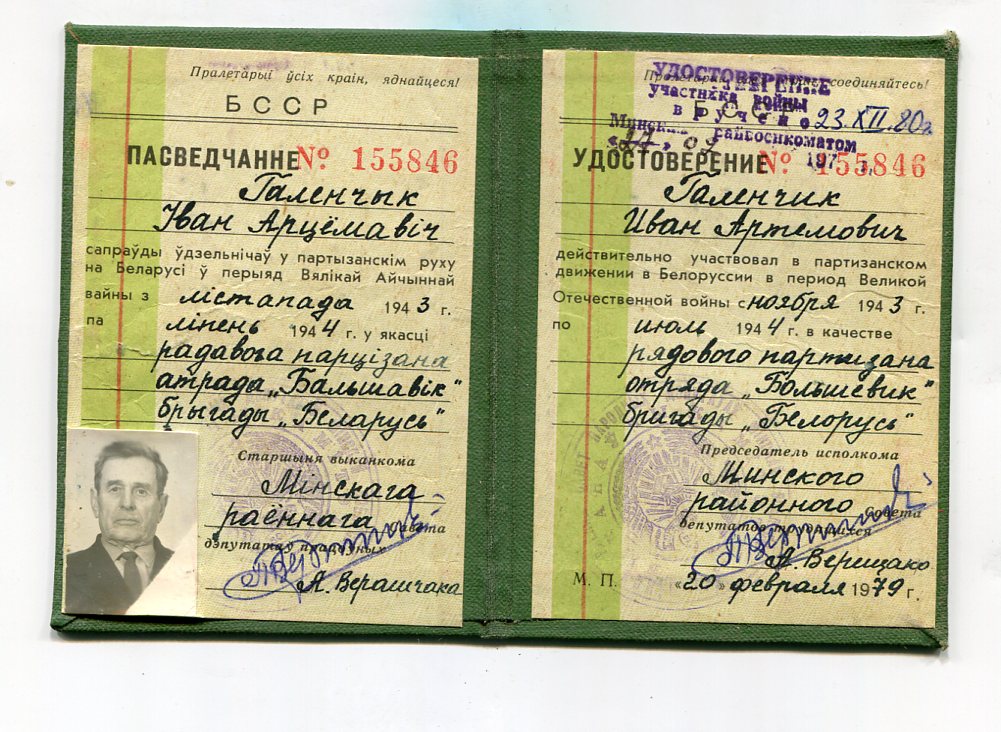 Пралетарыі ўсіх краін, яднайцеся!
БССР
ПАСВЕДЧАННЕ № 155846
Галенчык
Іван Арцёмавіч
сапраўды ўдзельнічаў у партызанскім руху
на Беларусі ў перыяд Вялікай Айчыннай
вайны з лістапада 1943 г.
па ліпень 1944 г. у якасці
радавога парцізана
атрада „Бальшавік"
брыгады „Беларусь"
Старшыня выканкома
Мінскага
раённага Савета
дэпутатаў працоўных
А. Верашчака
Пролетарии соединяйтесь!
УДОСТОВЕРЕНИЕ
участника войны
вручено 23.XII.80г
БССР
Минским райвоенкоматом
197 г.
УДОСТОВЕРЕНИЕ № 155846
Галенчик
Иван Артемович
действительно участвовал в партизанском
движении в Белоруссии в период Великой
Отечественной войны с ноября 1943 г.
по июль 1944 г. в качестве
рядового партизана
отряда „Большевик"
бригады „Белорусь"
Председатель исполкома
Минского
районного Совета
депутатов трудящихся
А. Верещако
М. П. «20» февраля 1979 г.